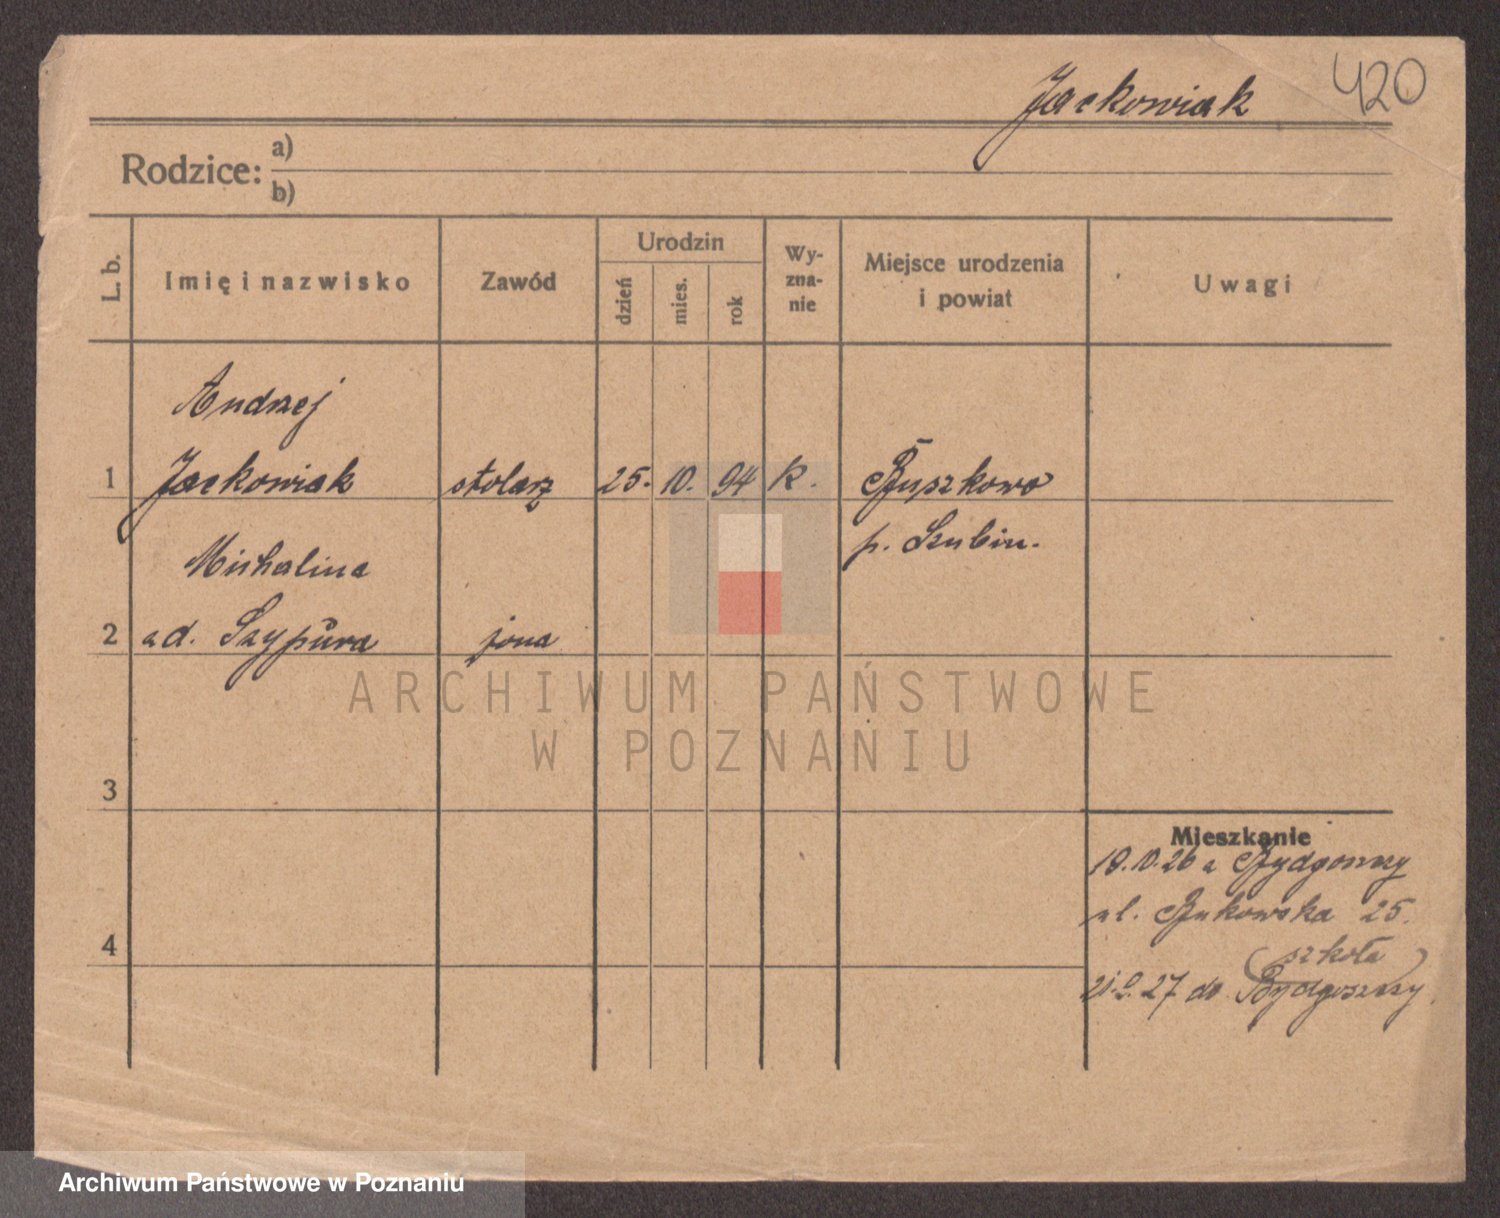 Jackowiak 420
Rodzice: a)
b)
L. b.
Imię i nazwisko
Zawód
Urodzin
dzień
mies.
rok
Wy-
zna-
nie
Miejsce urodzenia
i powiat
Uwagi
Andrzej
1 Jackowiak stolarz 25. 10. 94 K. Ruszkowo
p. Szubin.
Michalina
2 zd. Szypura żona
3
4
Mieszkanie
19.10.26 z Bydgoszczy
ul. Bukowska 25.
(szkoła)
27 do Bydgoszczy
ARCHIWUM PAŃSTWOWE
W POZNANIU
Archiwum Państwowe w Poznaniu